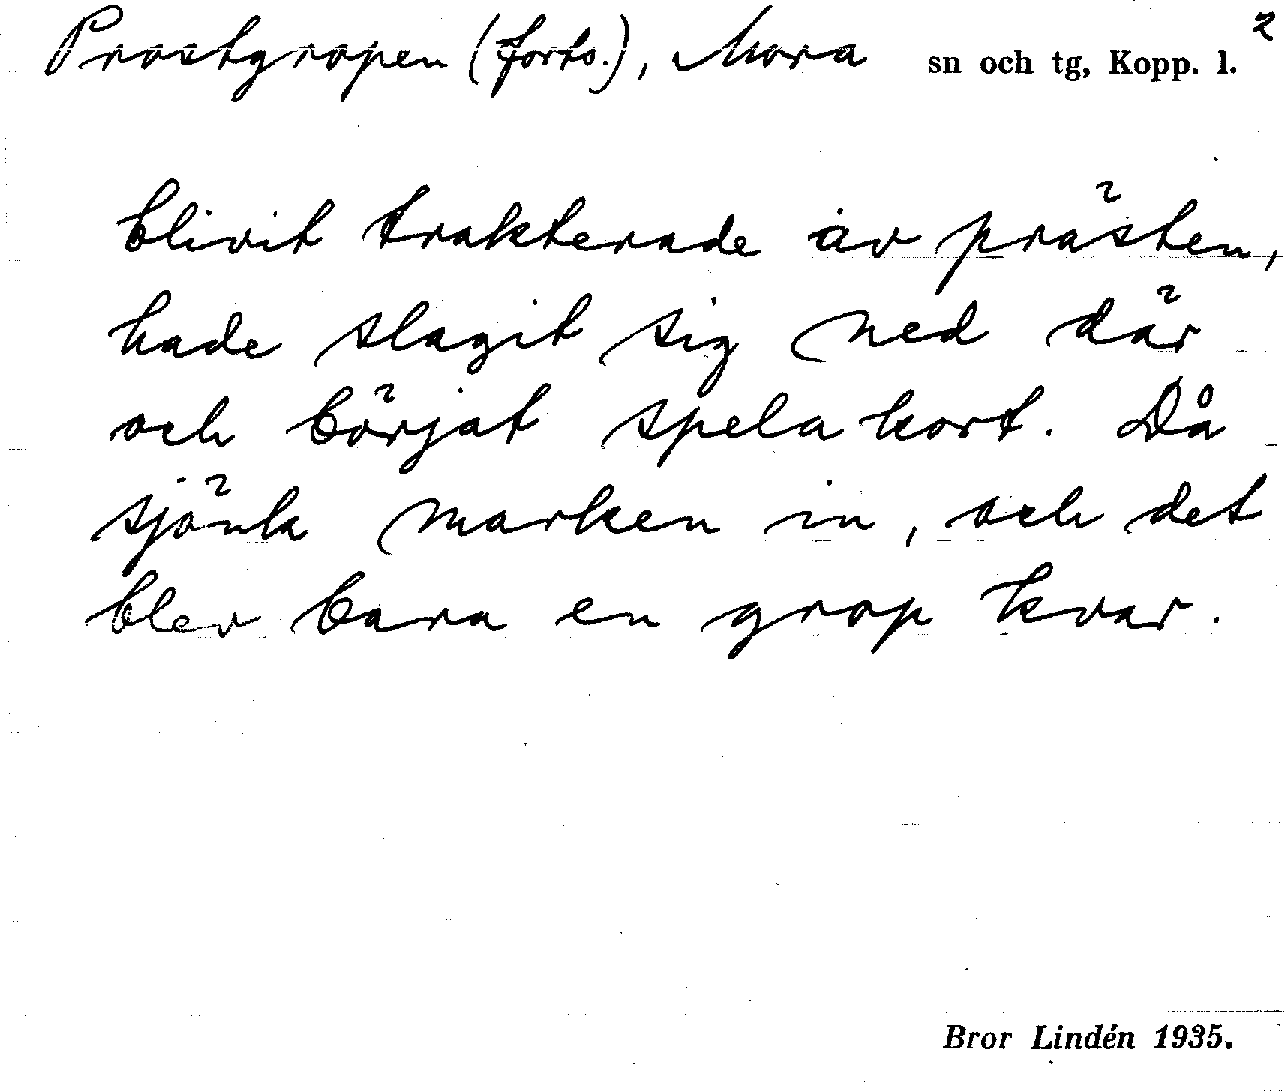 2
Prostgropen (forts.), Mora sn och tg, Kopp. l.
blivit trakterade av prästen,
hade slagit sig ned där
och börjat spela kort. Då
sjönk marken in, och det
blev bara en grop kvar.
Bror Lindén 1935.